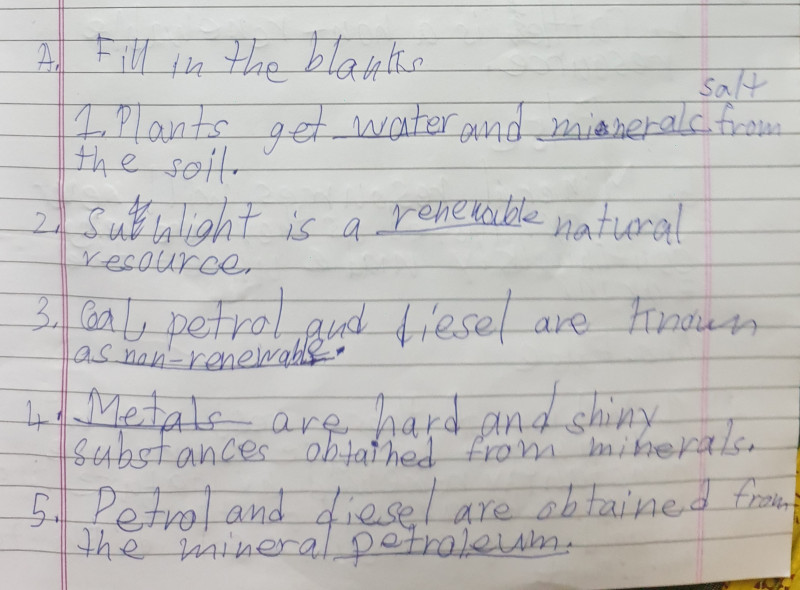 A. Fill in the blanks
salt
1. Plants get water and minerals from
the soil.
2. Sunlight is a renewable natural
resource.
3. Coal, petrol and diesel are known
as non-renewable.
4. Metals are hard and shiny
substances obtained from minerals.
5. Petrol and diesel are obtained from
the mineral petroleum.